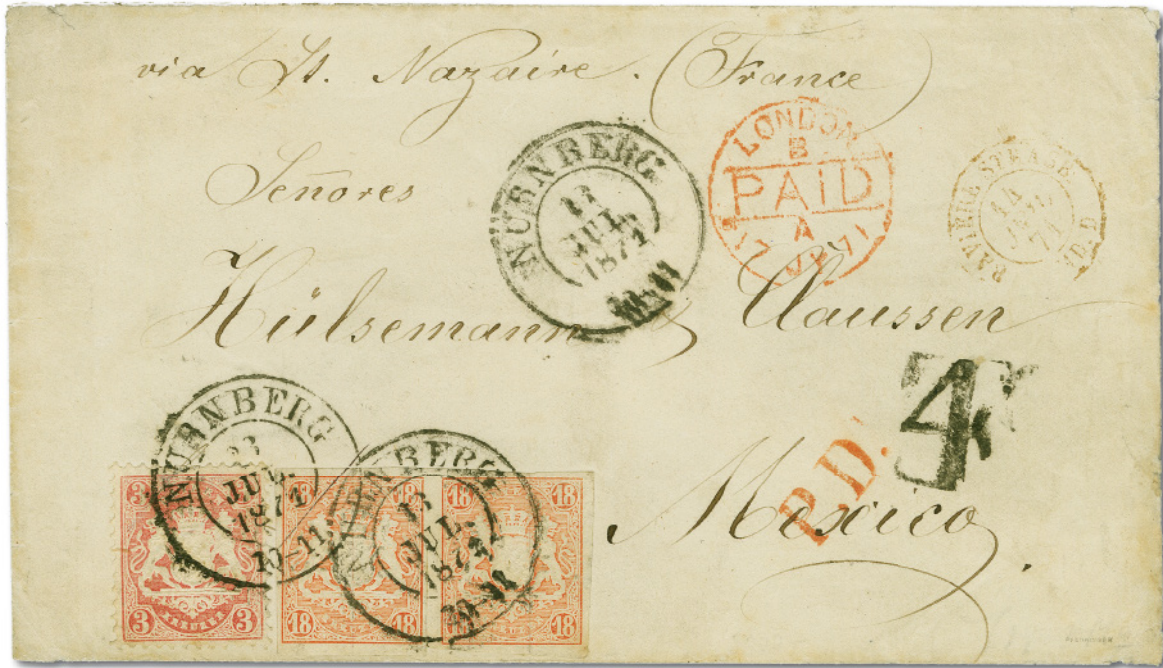 via St. Nazaire. (France)
Señores
Hülsemann & Claussen
Mexico.
NÜRNBERG
13
JUL.
1871
10-11
LONDON
B
PAID
A
17 JY 71
14
JUL
71
P.D.
4
NÜRNBERG
13
JUL.
1871
10-11
NÜRNBERG
13
JUL.
1871
10-11
3 3
3 KREUZER 3
18 18
18 18
18 18
18 18